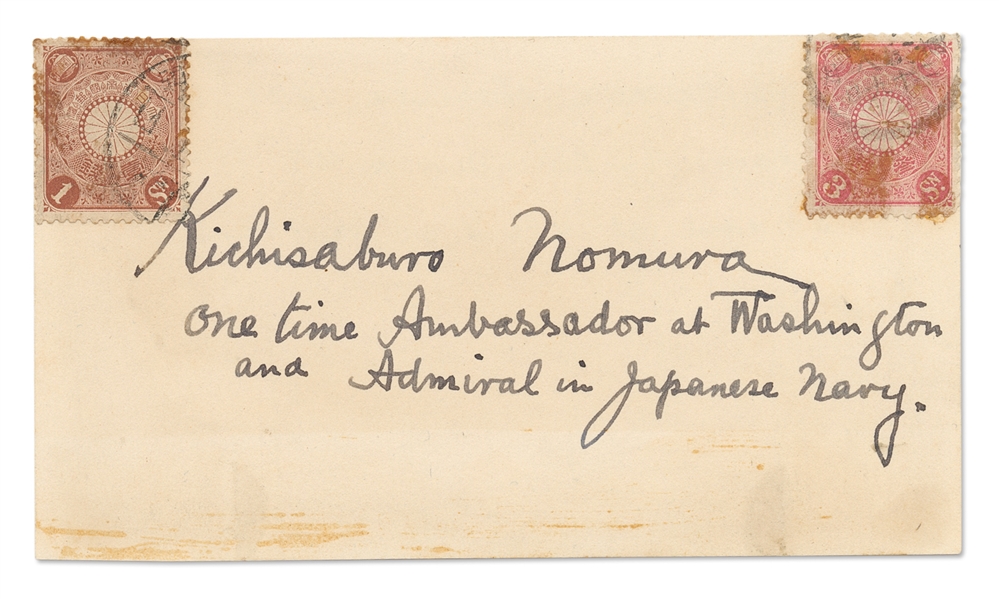 1 Sn.
3 Sn.
Kichisaburo Nomura
One time Ambassador at Washington
and Admiral in Japanese Navy.